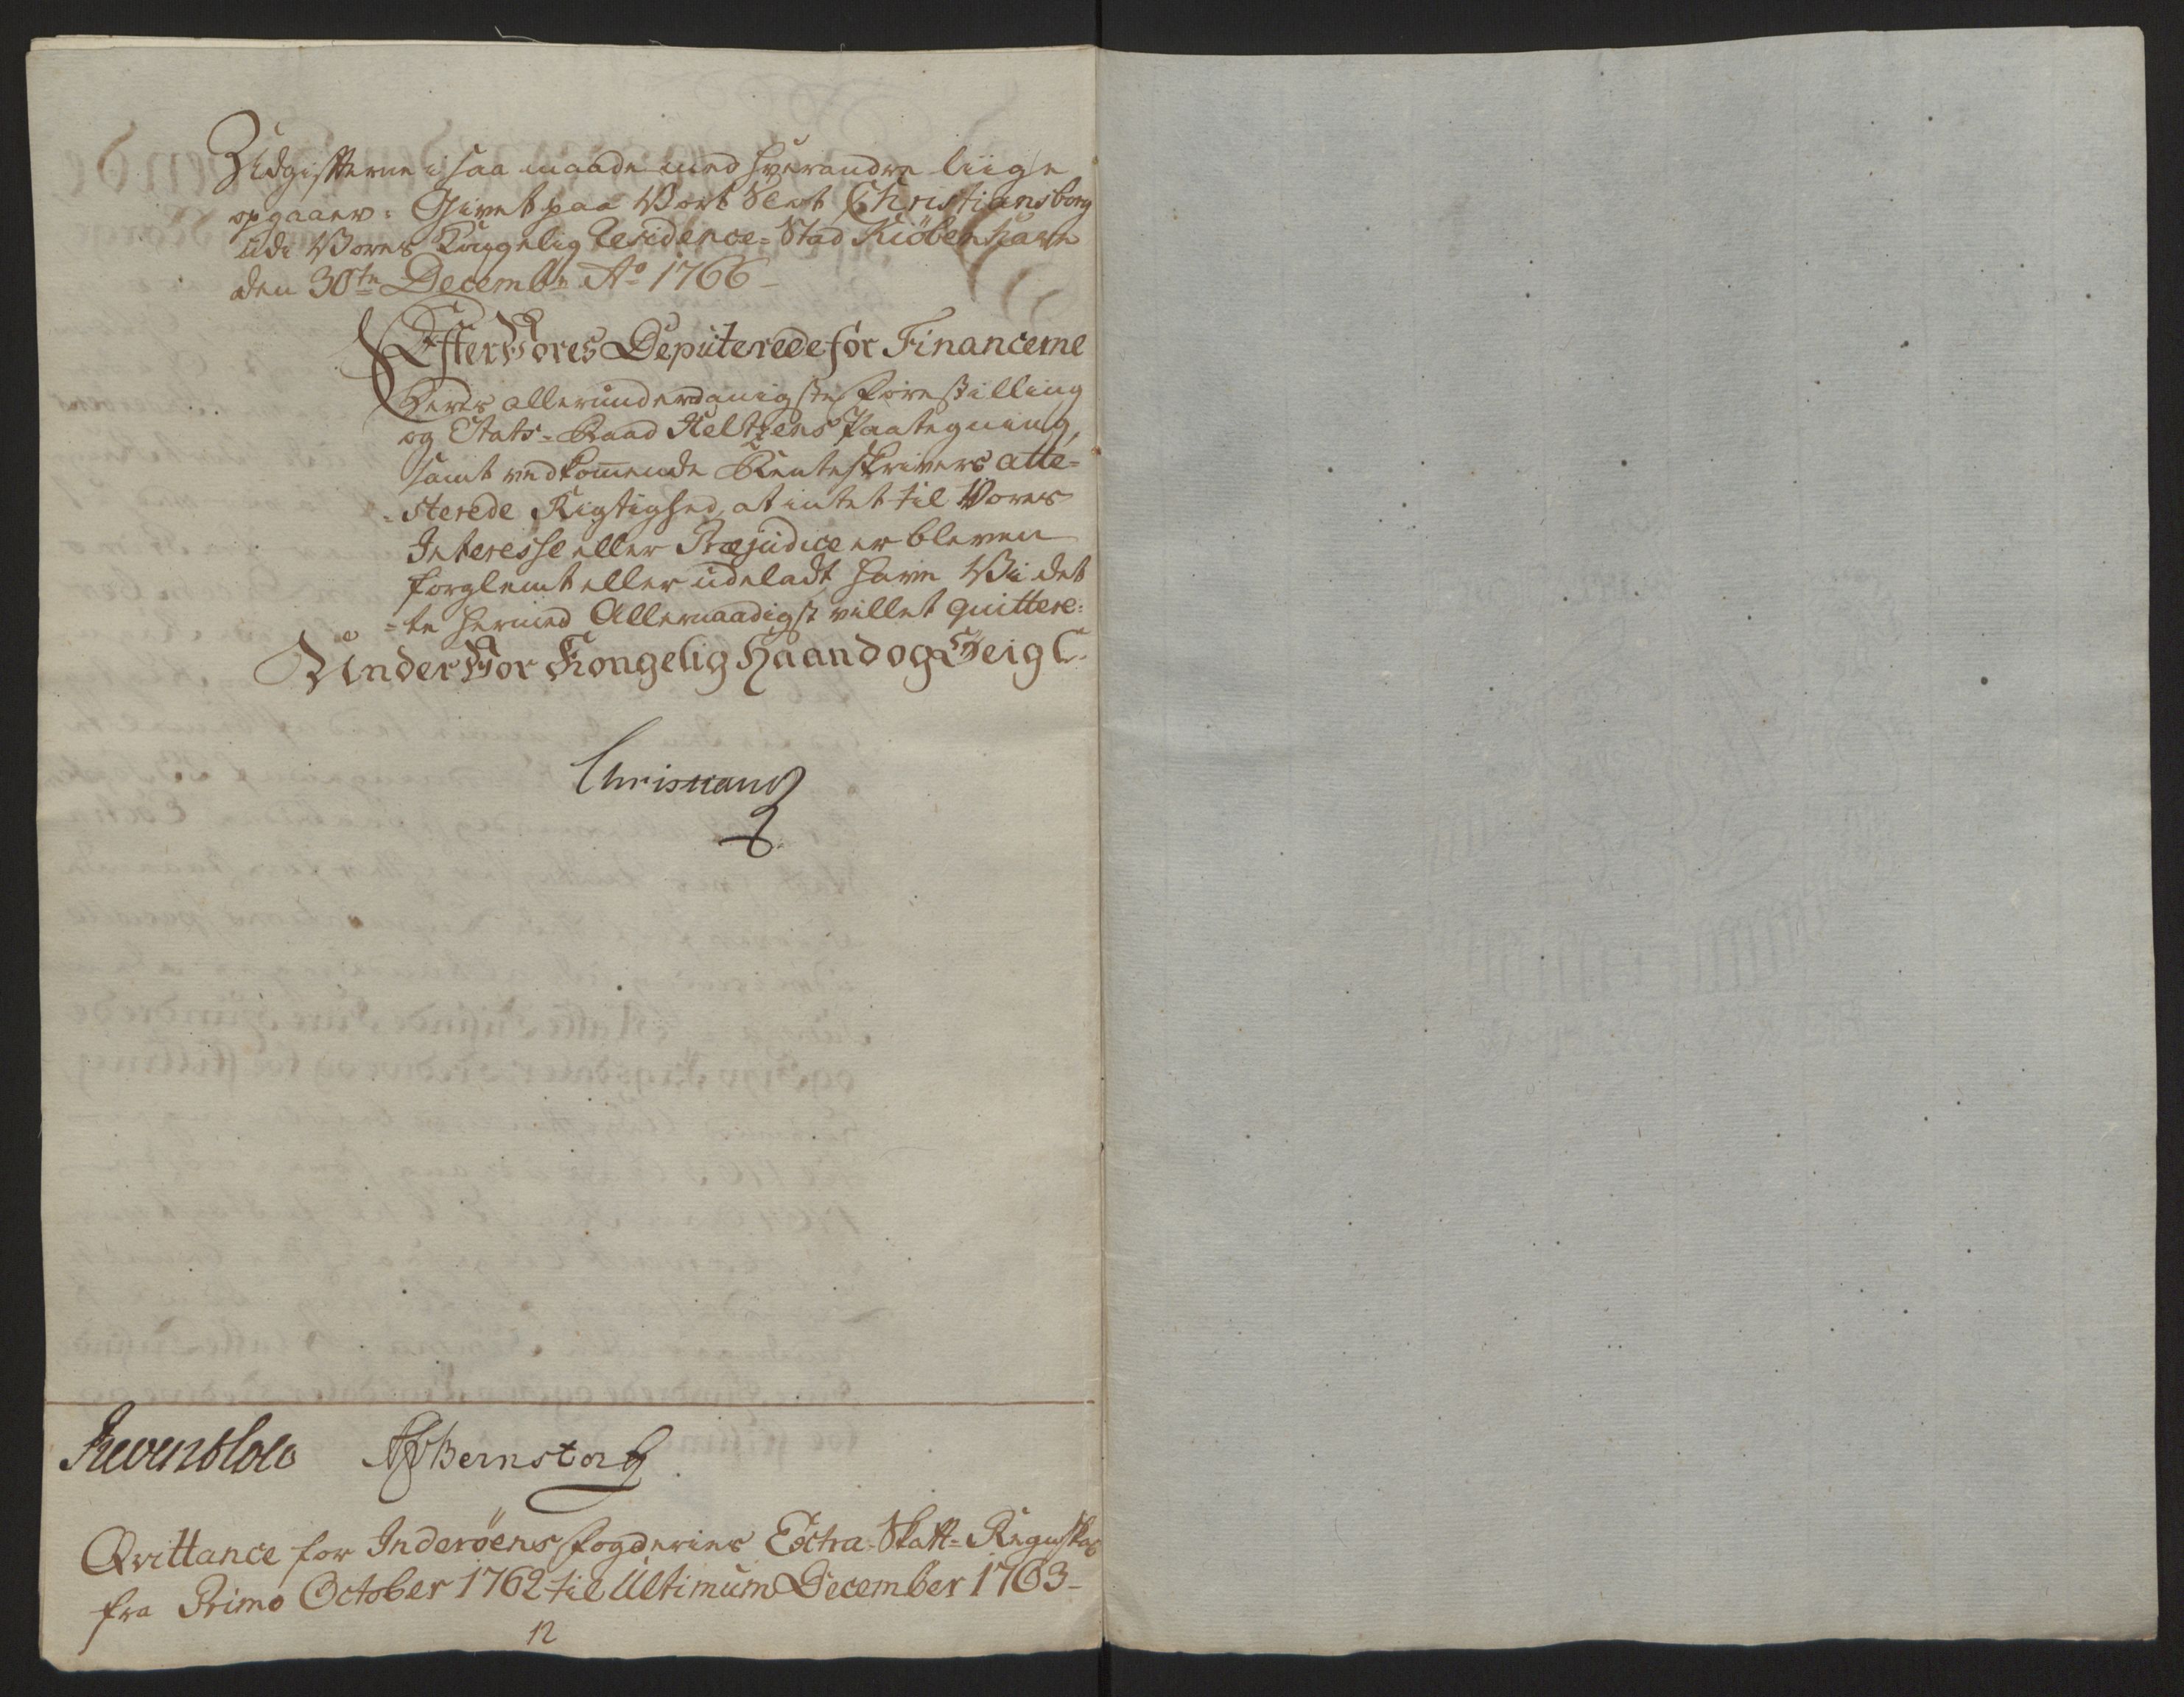 Udgifterne i saa maade med hverandre liige
opgaaer. Givet paa Vort Slot Christiansborg
udi Vores Kongelig Residence-Stad Kiöbenhavn
den 30te Decembr Ao 1766
Efter Vores Deputerede for Financerne
Deres allerunderdanigste forestilling
og Etats-Raad Heltzens Paategning,
samt vedkommende Renteskrivers atte=
=sterede Rigtighed, at intet til Vores
Interesse eller Præjudice er bleven
forglemt eller udeladt, have Vi det
=te hermed Allernaadigst villet quittere:
Under Vor Kongelig Haand og Seigl
Christian
Reventlow AGVBernstorff
Qvittance for Inderöens fogderies Extra-Skatt-Regnskab
fra Primo October 1762 til Ultimum December 1763
12